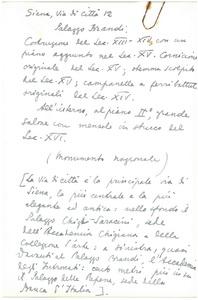 Siena, Via di Città 12
Palazzo Brandi:
Costruzione del Sec. XIII-XIV, con un
piano aggiunto nel Sec. XV. Cornicione
originale del Sec. XV; stemma scolpito
del Sec. XV; campanelle e ferri battuti
originali del Sec. XIV.
All'interno, al piano IIº, grande
salone con mensole in stucco del
Sec. XVI.
(Monumento nazionale)
[La Via di Città è la principale via di
Siena, la più centrale e la più
elegante ed antica: nello sfondo il
Palazzo Chigi-Saracini, sede
dell'Accademia Chigiana e della
Collezione d'arte: a sinistra, quasi
davanti al Palazzo Brandi, l'Accademia
degli Intronati: cento metri più in su
il Palazzo delle Papesse, sede della
Banca d'Italia].